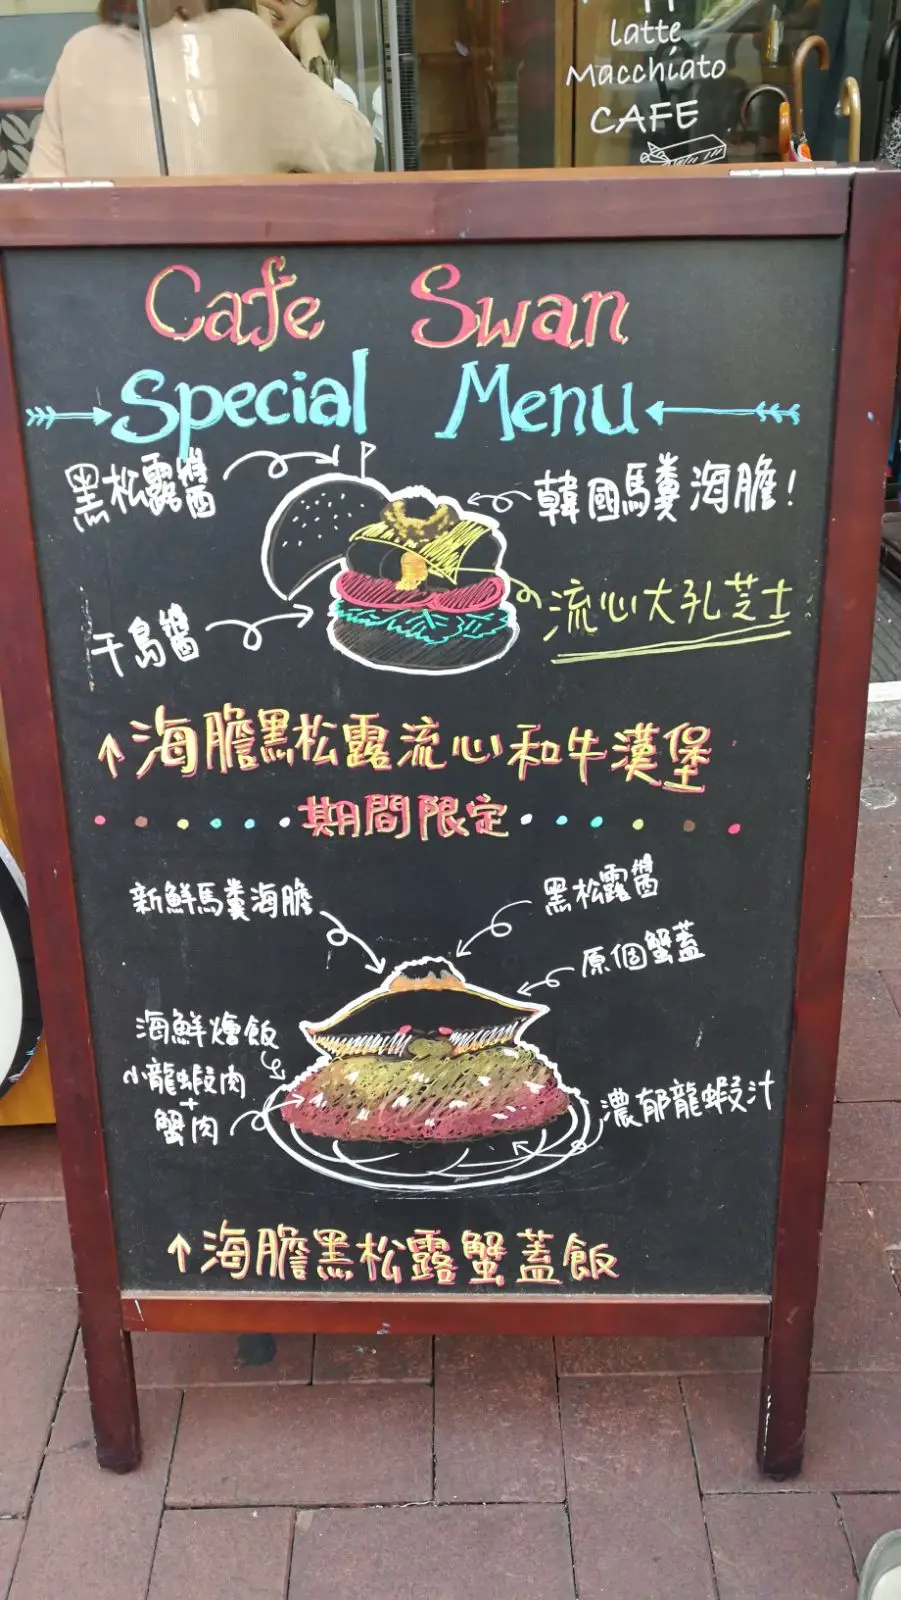 latte
Macchiato
CAFE
Cafe Swan
Special Menu
黑松露醬
韓國馬糞海膽!
流心大孔芝士
千島醬
↑海膽黑松露流心和牛漢堡
期間限定
新鮮馬糞海膽
黑松露醬
原個蟹蓋
海鮮燴飯
小龍蝦肉
+
蟹肉
濃郁龍蝦汁
↑海膽黑松露蟹蓋飯